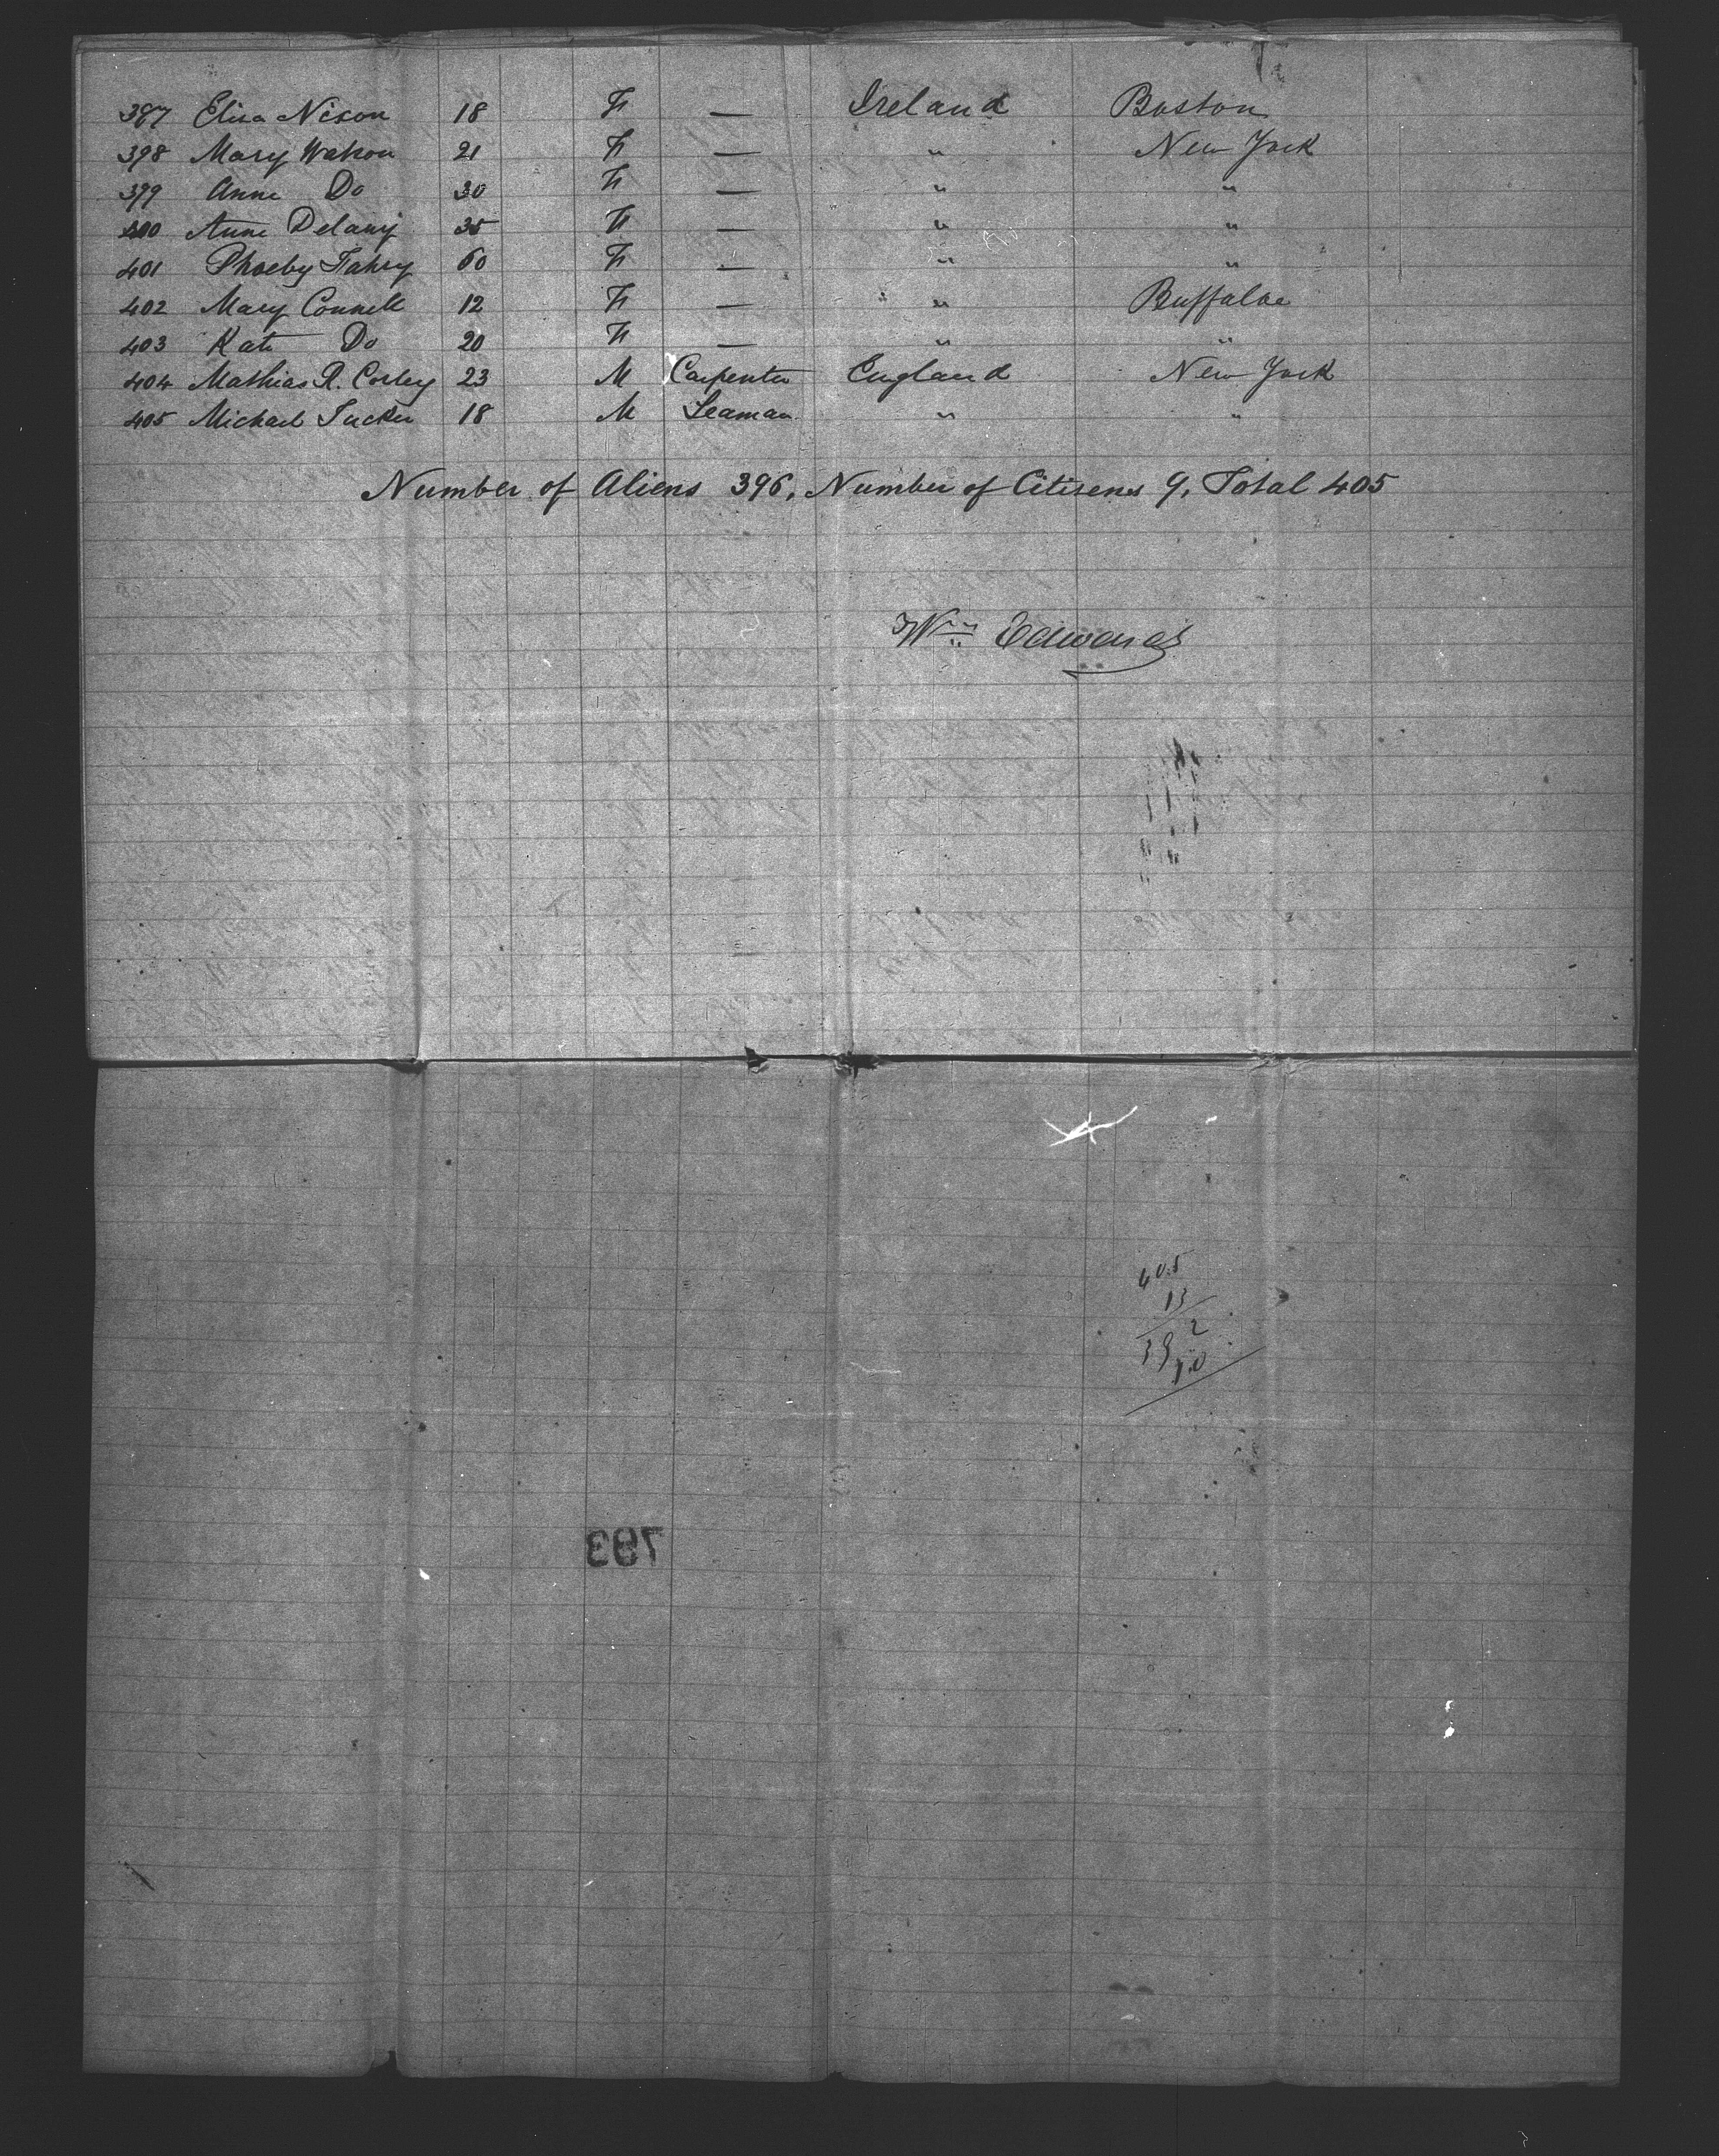 387 Eliza Nixon 18 F — Ireland Boston
398 Mary Watson 21 F — " New York
399 Anne Do 30 F — " "
400 Anne Delany 35 F — " "
401 Phoeby Fahey 60 F — " "
402 Mary Connell 12 F — " Buffaloe
403 Kate Do 20 F — " "
404 Mathias R. Corley 23 M Carpenter England New York
405 Michael Tucker 18 M Seaman " "
Number of Aliens 396, Number of Citizens 9, Total 405
Wm Edwards
405
13
392
793